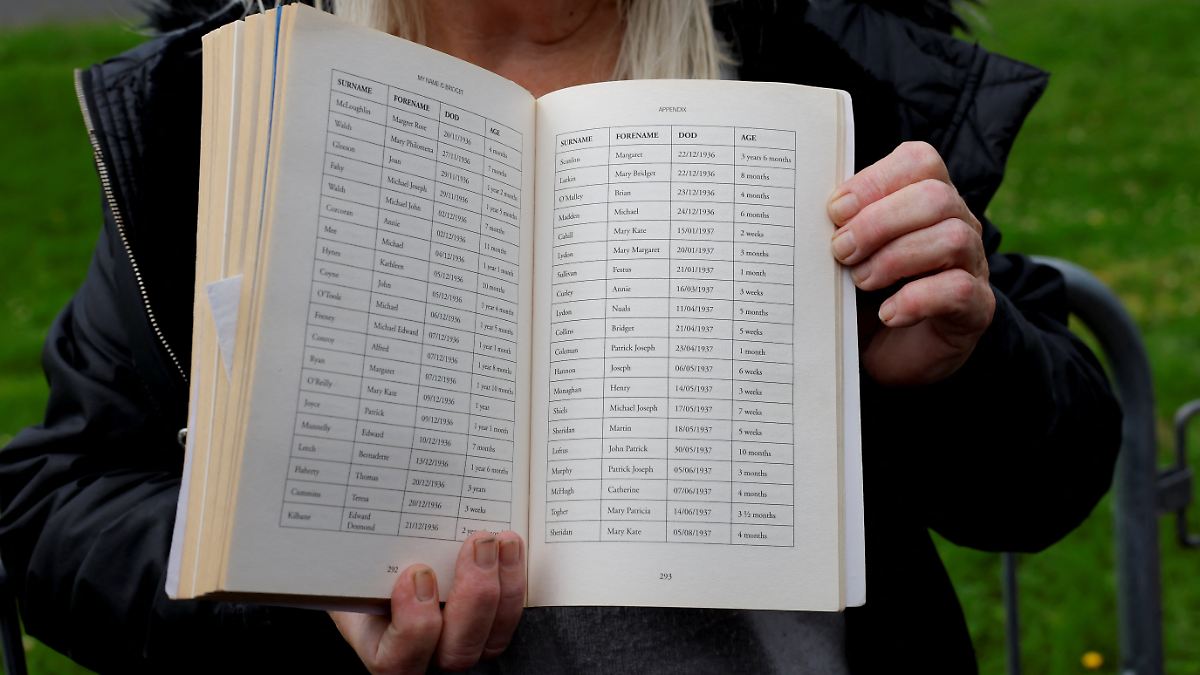 MY NAME IS BRIDGET
SURNAME FORENAME DOD AGE
McLoughlin Margret Rose 20/11/1936 4 months
Walsh Mary Philomena 27/11/1936 7 months
Gleeson Joan 29/11/1936 1 year 2 months
Fahy Michael Joseph 29/11/1936 1 year 5 months
Walsh Michael John 02/12/1936 7 months
Corcoran Annie 02/12/1936 11 months
Mee Michael 04/12/1936 1 year 1 month
Hynes Kathleen 05/12/1936 10 months
Coyne John 05/12/1936 1 year 6 months
O'Toole Michael 06/12/1936 1 year 5 months
Feeney Michael Edward 07/12/1936 1 year 1 month
Conroy Alfred 07/12/1936 1 year 8 months
Ryan Margaret 07/12/1936 1 year 10 months
O'Reilly Mary Kate 09/12/1936 1 year
Joyce Patrick 09/12/1936 1 year 1 month
Munnelly Edward 10/12/1936 7 months
Leech Bernadette 13/12/1936 1 year 6 months
Flaherty Thomas 20/12/1936 3 years
Cummins Teresa 20/12/1936 3 weeks
Kilbane Edward Desmond 21/12/1936 2
292
APPENDIX
SURNAME FORENAME DOD AGE
Scanlon Margaret 22/12/1936 3 years 6 months
Larkin Mary Bridget 22/12/1936 8 months
O'Malley Brian 23/12/1936 4 months
Madden Michael 24/12/1936 6 months
Cahill Mary Kate 15/01/1937 2 weeks
Lydon Mary Margaret 20/01/1937 3 months
Sullivan Festus 21/01/1937 1 month
Curley Annie 16/03/1937 3 weeks
Lydon Nuala 11/04/1937 5 months
Collins Bridget 21/04/1937 5 weeks
Coleman Patrick Joseph 23/04/1937 1 month
Hannon Joseph 06/05/1937 6 weeks
Monaghan Henry 14/05/1937 3 weeks
Shiels Michael Joseph 17/05/1937 7 weeks
Sheridan Martin 18/05/1937 5 weeks
Loftus John Patrick 30/05/1937 10 months
Murphy Patrick Joseph 05/06/1937 3 months
McHugh Catherine 07/06/1937 4 months
Togher Mary Patricia 14/06/1937 3 ½ months
Sheridan Mary Kate 05/08/1937 4 months
293